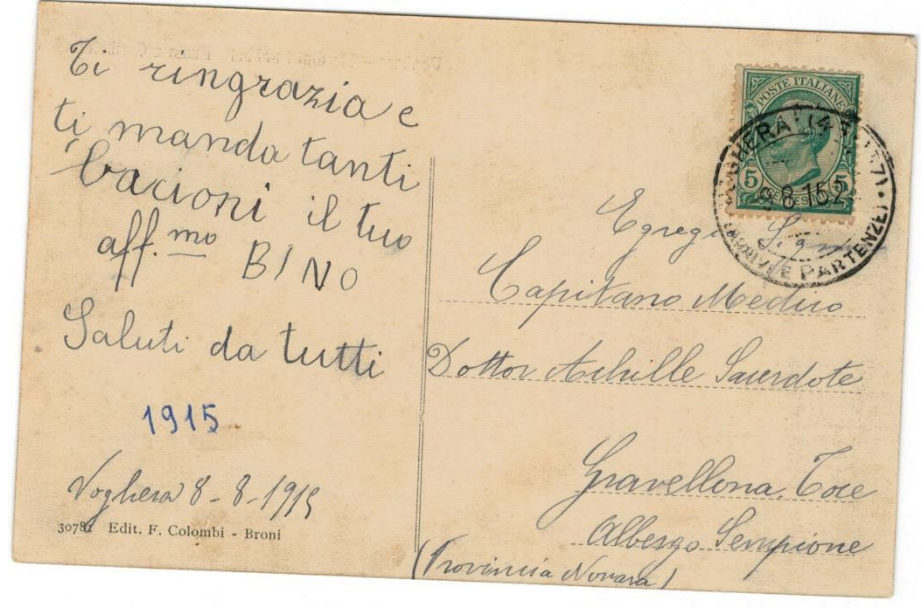 Ti ringrazia e
ti manda tanti
bacioni il tuo
aff.mo BINO
Saluti da tutti
1915
Voghera 8-8-1915
30781 Edit. F. Colombi - Broni
POSTE ITALIANE
5 5
VOGHERA
9.8.15
ARRIVI E PARTENZE
Egregio Signor
Capitano Medico
Dottor Achille Sacerdote
Gravellona Toce
Albergo Sempione
(Provincia Novara)